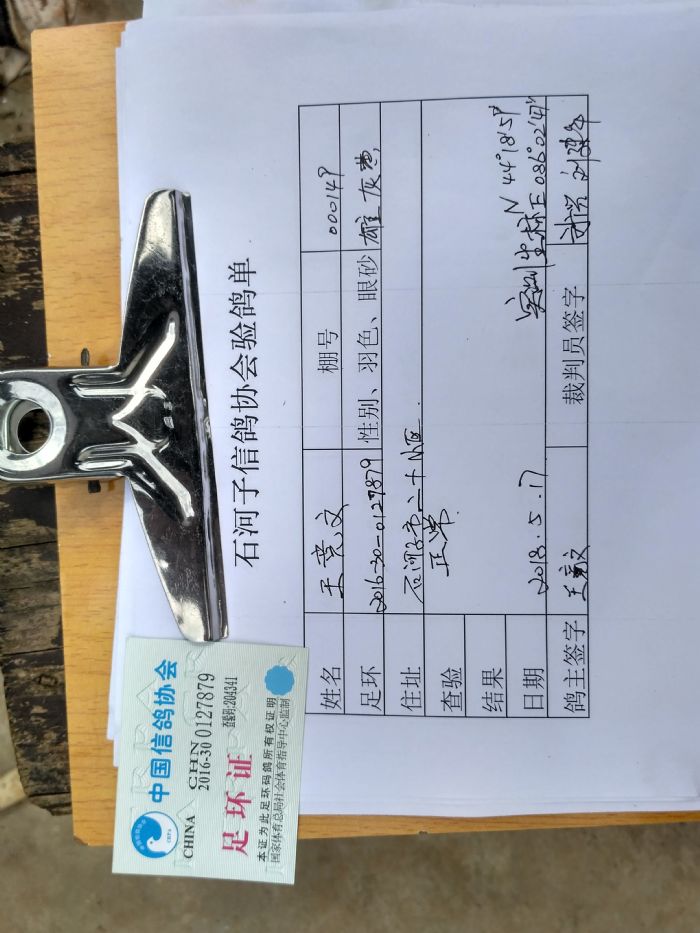 石河子信鸽协会验鸽单
姓名 王亮文 棚号 000149
足环 2016-30-0127879 性别、羽色、眼砂 雄 灰
住址 石河子市二十小区.
查验 正常.
结果
N 44°18'59"
日期 2018.5.17 E 086°02'47"
鸽主签字 裁判员签字
中国信鸽协会
CHINA CHN
2016-30 0127879
查验码:204341
足环证
本证为此足环码鸽所有权证明
国家体育总局社会体育指导中心监制